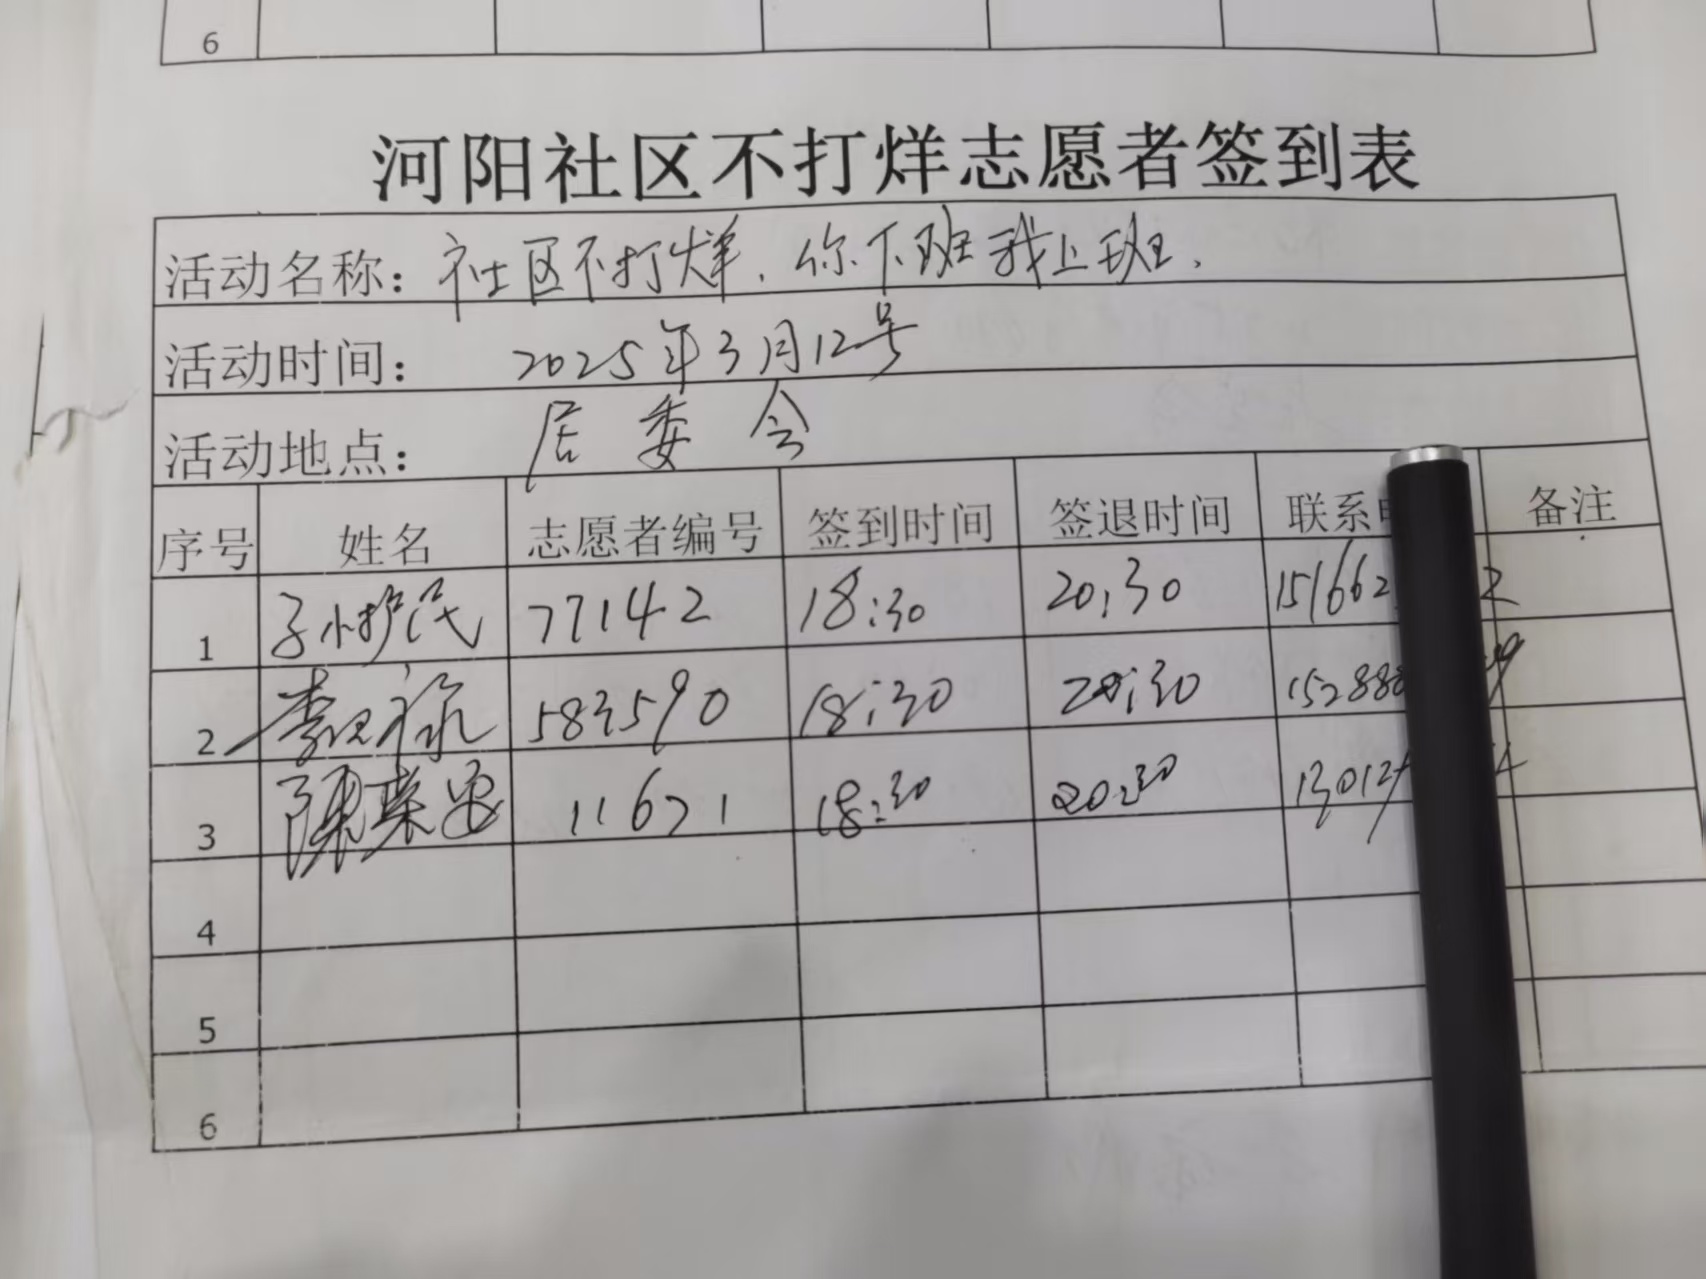 6
河阳社区不打烊志愿者签到表
活动名称：社区不打烊，你下班我上班．
活动时间： 2025年3月12号
活动地点： 居委会
序号 姓名 志愿者编号 签到时间 签退时间 联系 备注
1 77142 18:30 20:30 151662 2
2 583590 18:30 20:30 152888 9
3 陳荣 11671 18:30 20:30 13012
4
5
6